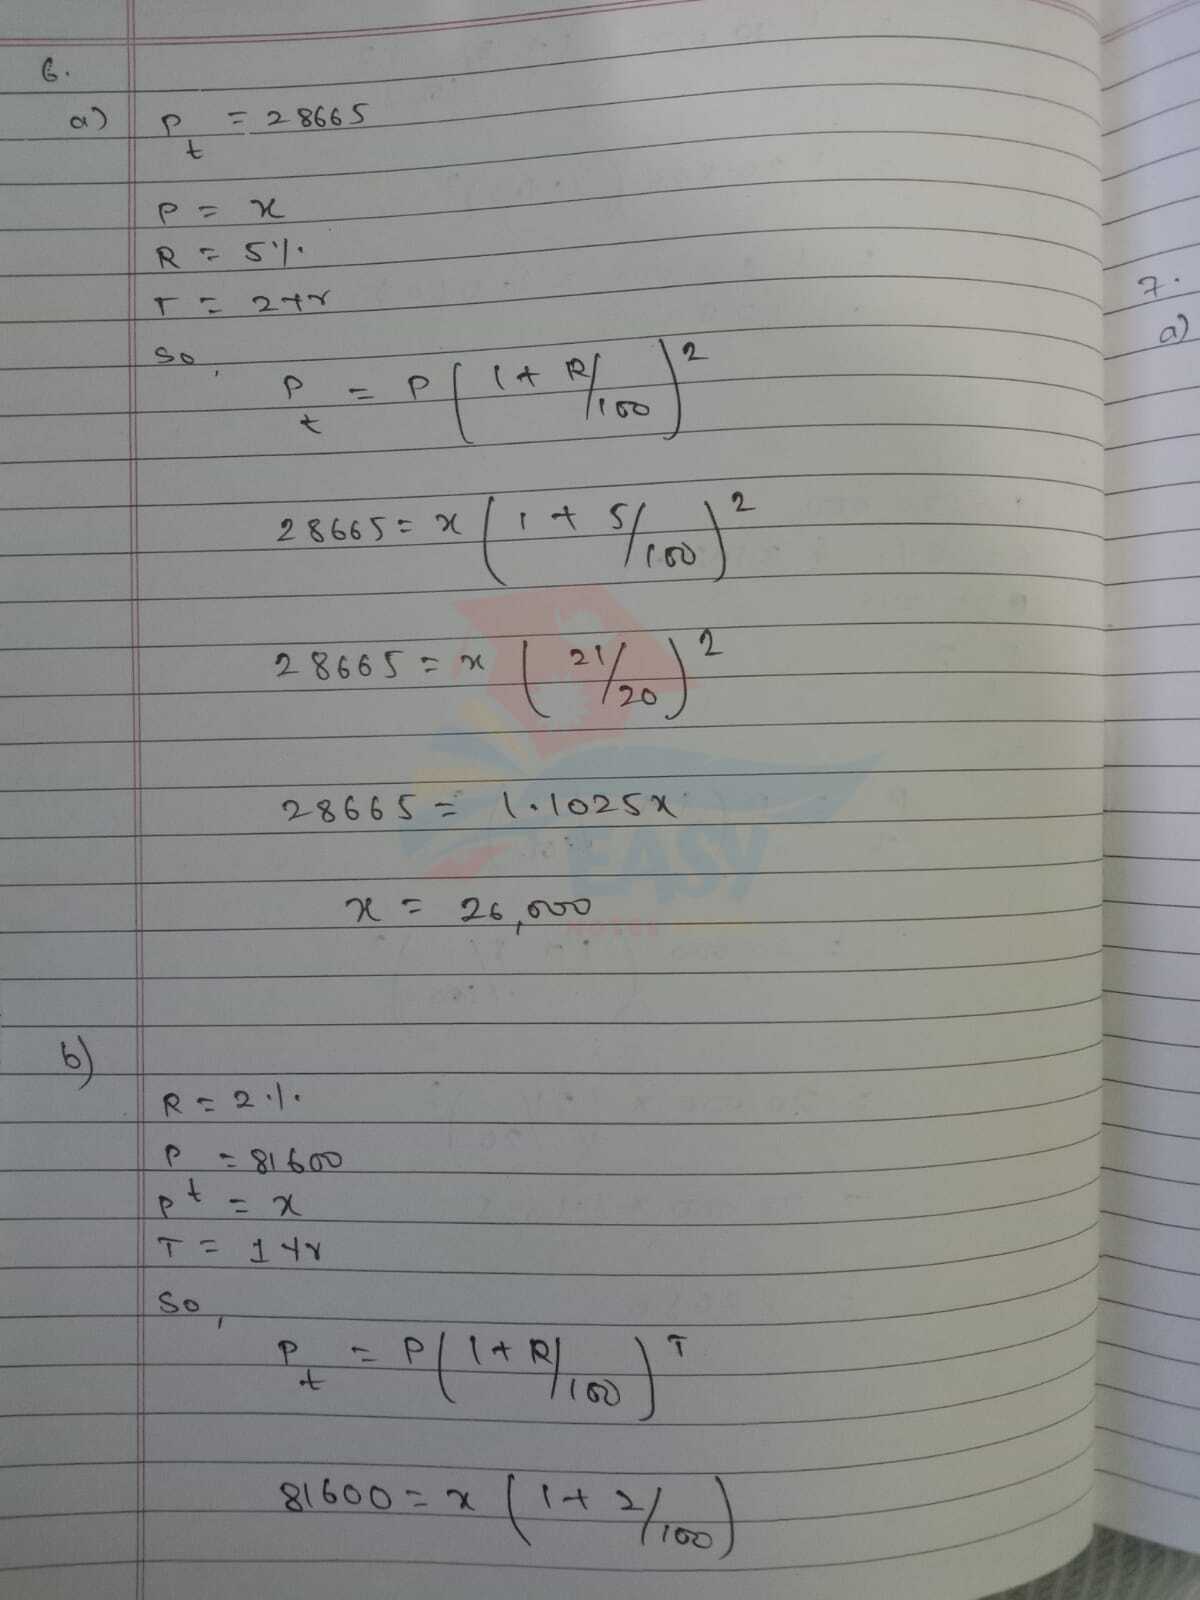 6.
a) P_t = 28665
P = x
R = 5%
T = 2 yr
So,
P_t = P (1 + R/100)^2
28665 = x (1 + 5/100)^2
28665 = x (21/20)^2
28665 = 1.1025x
x = 26,000
b)
R = 2%
P_t = 81600
P = x
T = 1 yr
So,
P_t = P (1 + R/100)^T
81600 = x (1 + 2/100)
7.
a)
EASY
NOTES